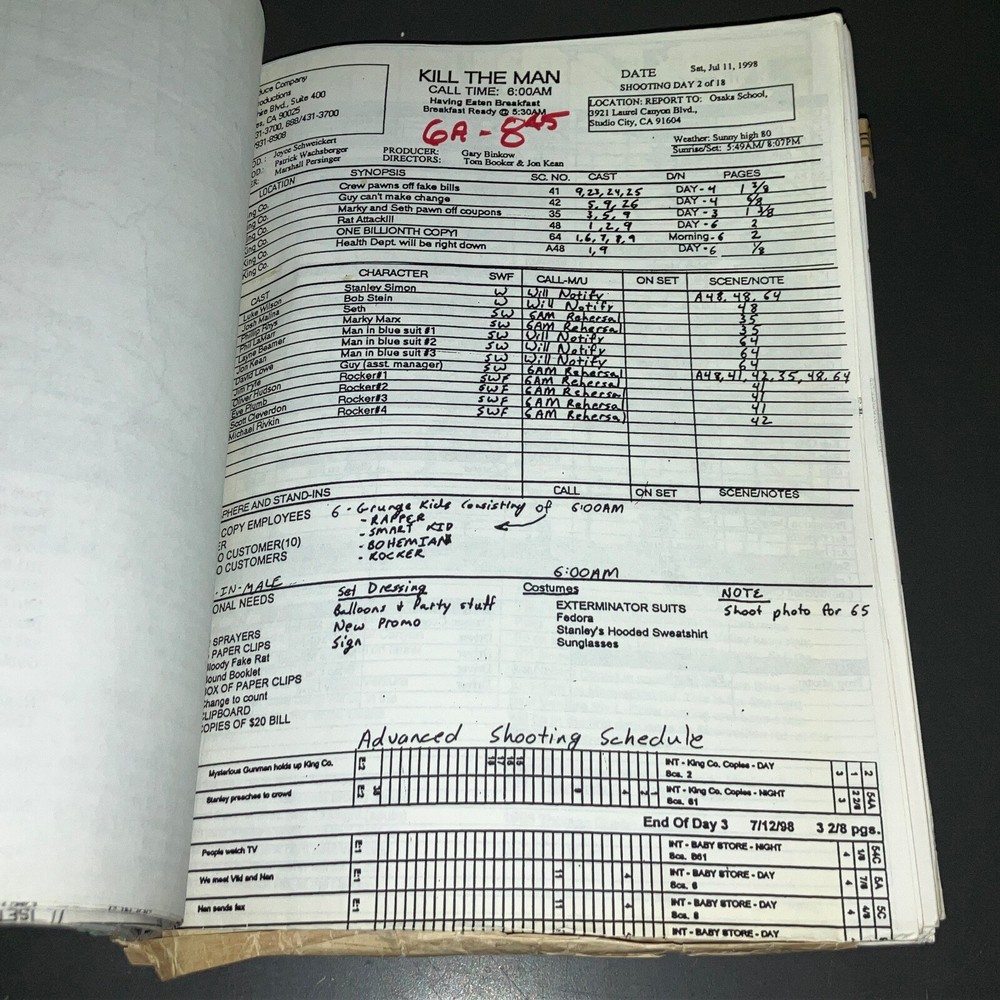 duce Company
oductions
hire Blvd., Suite 400
es, CA 90025
31-3700, 888/431-3700
931-8908
KILL THE MAN
CALL TIME: 6:00AM
Having Eaten Breakfast
Breakfast Ready @ 5:30AM
6A - 8
DATE Sat, Jul 11, 1998
SHOOTING DAY 2 of 18
LOCATION: REPORT TO: Osaka School,
3921 Laurel Canyon Blvd.,
Studio City, CA 91604
Weather: Sunny high 80
Sunrise/Set: 5:49AM/ 8:07PM
Joyce Schweickert
Patrick Wachsberger
Marshall Persinger
PRODUCER: Gary Binkow
DIRECTORS: Tom Booker & Jon Kean
LOCATION SYNOPSIS SC. NO. CAST D/N PAGES
ng Co. Crew pawns off fake bills 41 9,23,24,25 DAY-4 1 3/8
ng Co. Guy can't make change 42 5,9,26 DAY-4
ng Co. Marky and Seth pawn off coupons 35 3,5,9 DAY-3 1 3/8
ng Co. Rat Attack!!! 48 1,2,9 DAY-6 2
King Co. ONE BILLIONTH COPY! 64 1,6,7,8,9 Morning-6 2
King Co. Health Dept. will be right down A48 1,9 DAY-6 1/8
CAST CHARACTER SWF CALL-M/U ON SET SCENE/NOTE
Luke Wilson Stanley Simon W Will Notify A48, 48, 64
Josh Malina Bob Stein W Will Notify 48
Phillip Rhys Seth SW 6AM Rehersal 35
Phil LaMarr Marky Marx SW 6AM Rehersal 35
Layne Beamer Man in blue suit #1 SW Will Notify 64
Jon Kean Man in blue suit #2 SW Will Notify 64
David Lowe Man in blue suit #3 SW Will Notify 64
Jim Fyfe Guy (asst. manager) SW 6AM Rehersal A48, 41, 42, 35, 48, 64
Oliver Hudson Rocker#1 SWF 6AM Rehersal 41
Eve Plumb Rocker#2 SWF 6AM Rehersal 41
Scott Cleverdon Rocker#3 SWF 6AM Rehersal 41
Michael Rivkin Rocker#4 SWF 6AM Rehersal 42
PHERE AND STAND-INS CALL ON SET SCENE/NOTES
COPY EMPLOYEES 6 - Grunge Kids Consisting of 6:00AM
ER - RAPPER
- SMART KID
O CUSTOMER(10) - BOHEMIAN
O CUSTOMERS - ROCKER
-IN-MALE 6:00AM
ONAL NEEDS Set Dressing Costumes NOTE
Balloons & Party stuff EXTERMINATOR SUITS Shoot photo for 65
New Promo Fedora
SPRAYERS Sign Stanley's Hooded Sweatshirt
PAPER CLIPS Sunglasses
loody Fake Rat
ound Booklet
OX OF PAPER CLIPS
hange to count
CLIPBOARD
COPIES OF $20 BILL
Advanced Shooting Schedule
Mysterious Gunman holds up King Co. INT - King Co. Copies - DAY
Scs. 2
Stanley preaches to crowd INT - King Co. Copies - NIGHT
Scs. 61
End Of Day 3 7/12/98 3 2/8 pgs.
People watch TV INT - BABY STORE - NIGHT
Scs. B61
We meet Viki and Nan INT - BABY STORE - DAY
Scs. 6
Nan sends fax INT - BABY STORE - DAY
Scs. 8
INT - BABY STORE - DAY